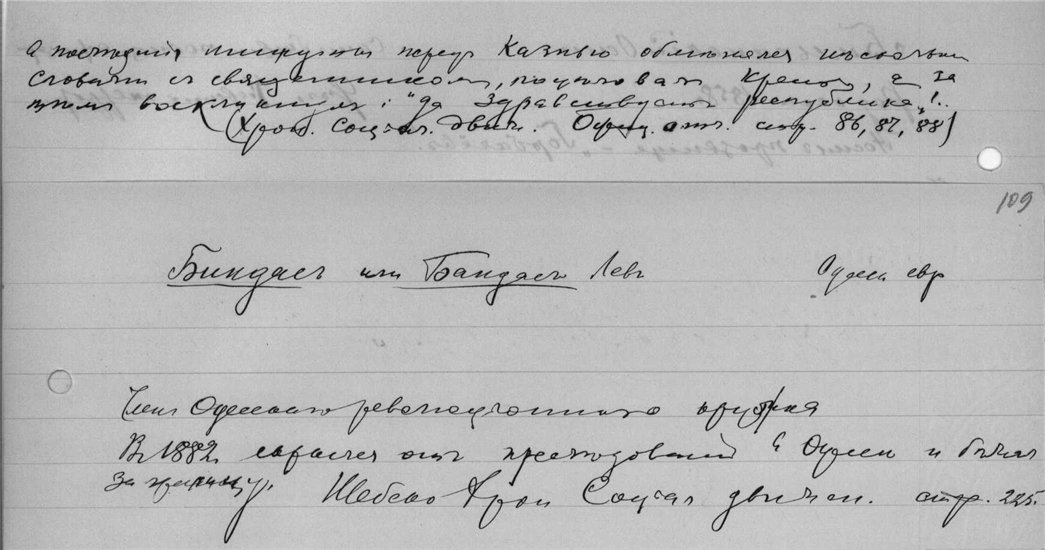 в последнія минуты передъ казнью обмѣнялся нѣсколькими
словами съ священникомъ, поцѣловалъ крестъ, а за
тѣмъ воскликнулъ: "да здравствуетъ республика"!..
(Хрон. Соціал. Движ. Офиц. отч. стр. 86, 87, 88)
109
Биндасъ или Бандасъ Левъ Одесса евр
Членъ Одесскаго революціоннаго кружка
Въ 1882 скрылся отъ преслѣдованій въ Одессѣ и бѣжалъ
за границу. Шебеко Хрон Соціал движен. стр. 225.